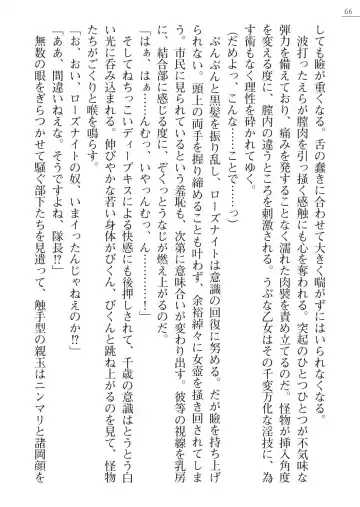 66
しても瞼が重くなる。舌の蠢きに合わせて大きく喘がずにはいられなくなる。
波打ったえらが膣肉を引っ掻く感触にも心を奪われた。突起のひとつひとつが不気味な
弾力を備えており、痛みを発することなく濡れた肉襞を責め立てるのだ。怪物が挿入角度
を変える度に、膣内の違うところを刺激される。うぶな乙女は、その千変万化な淫技に、為
す術もなく理性を砕かれてゆく。
（だめよっ、こんな……ことで……っ）
ぶんぶんと黒髪を振り乱し、ローズナイトは意識の回復に努める。だが瞼を持ち上げ
られない。頭上の両手を握り締めることも叶わず、余裕綽々に女壺を掻き回されてしま
う。市民に見られているという羞恥も、次第に意味合いが変わり出す。彼等の視線を乳房
に、結合部に感じる度に、ぞくっとうなじが燃え上がるのだ。
「はぁ、はぁ……んむっ、いやっんむっ、ん…………！」
そしてねちっこいディープキスによる快感にも後押しされて、千歳の意識はとうとう白
い光に呑み込まれる。伸びやかな若い身体がびくん、びくんと跳ね上がるのを見て、怪物
たちがごくりと喉を鳴らす。
「おい、ローズナイトの奴、いまイッたんじゃねえのか⁉」
「ああ、間違いねえな。そうですよね、隊長⁉」
無数の眼をぎらつかせて騒ぐ部下たちを見遣って、触手型の親玉はニンマリと諸岡顔を